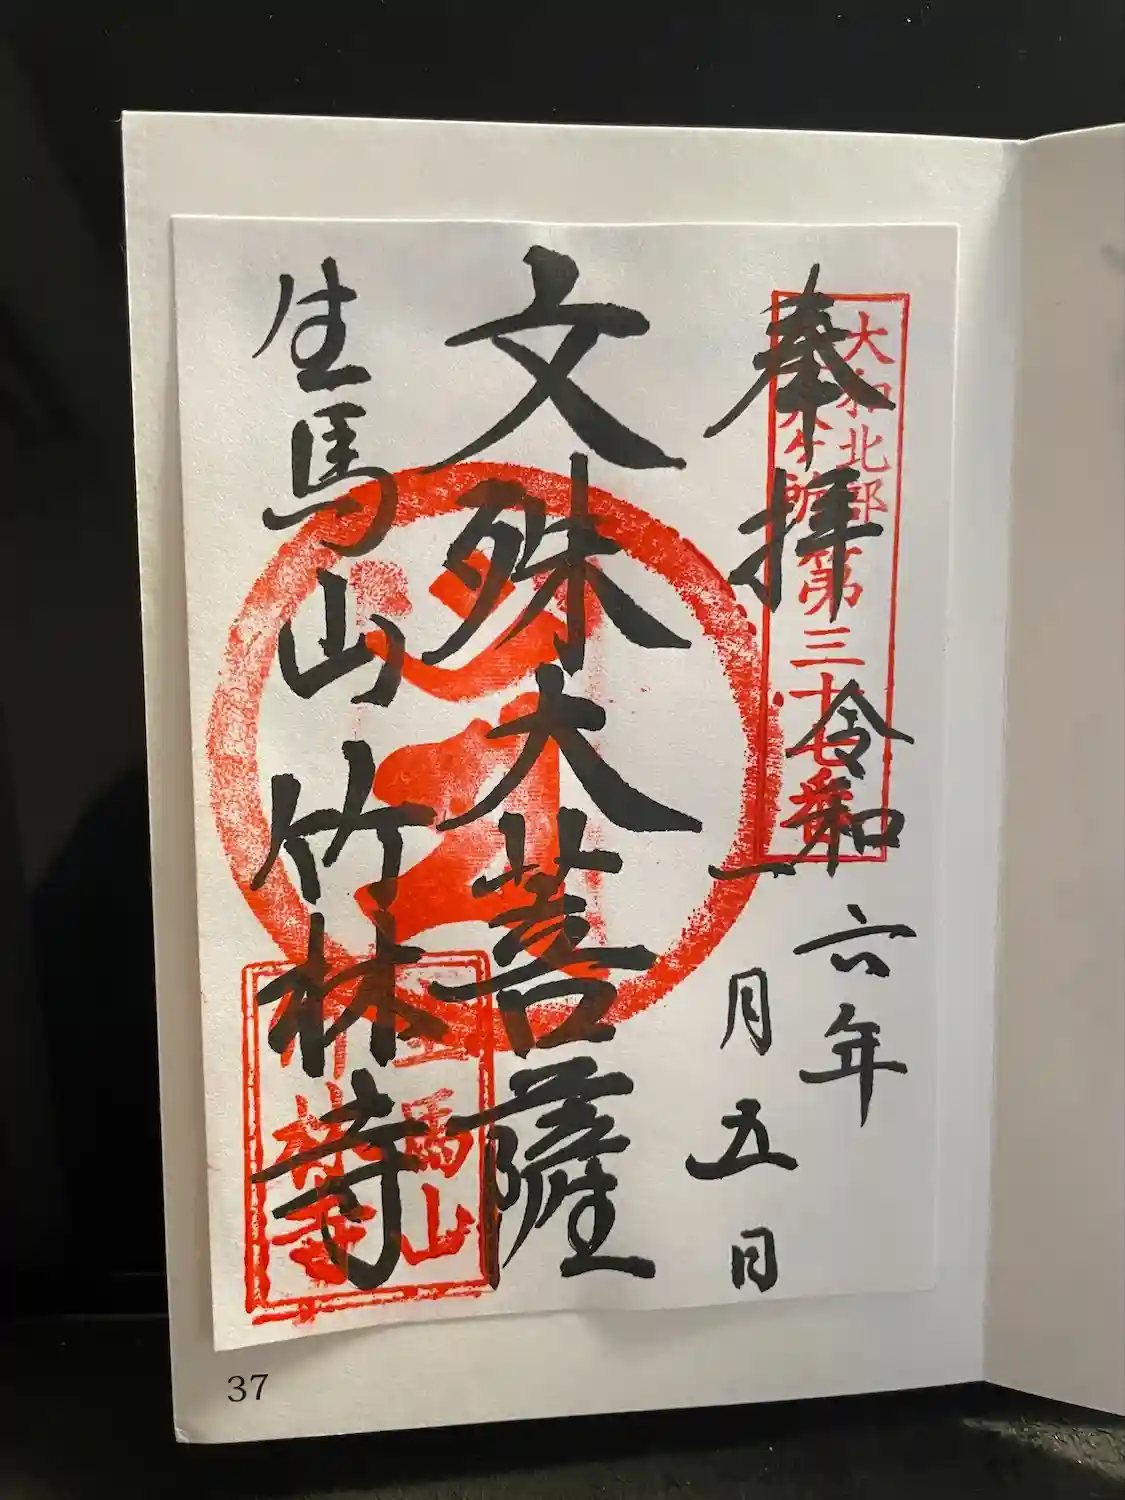 奉拝
大和北部
八十八ヶ所第三十七番
令和六年
一月五日
文殊大菩薩
生馬山竹林寺
生馬山
竹林寺
37